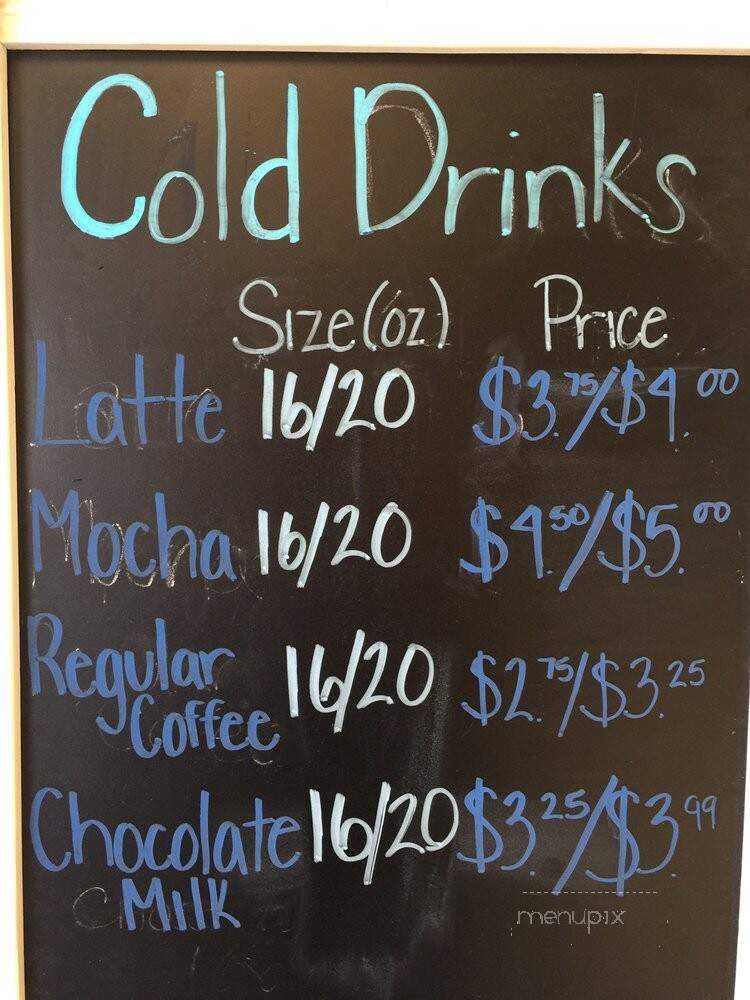 Cold Drinks
Size(oz) Price
Latte 16/20 $3.75/$4.00
Mocha 16/20 $4.50/$5.00
Regular
Coffee 16/20 $2.75/$3.25
Chocolate 16/20 $3.25/$3.99
Milk
menupix